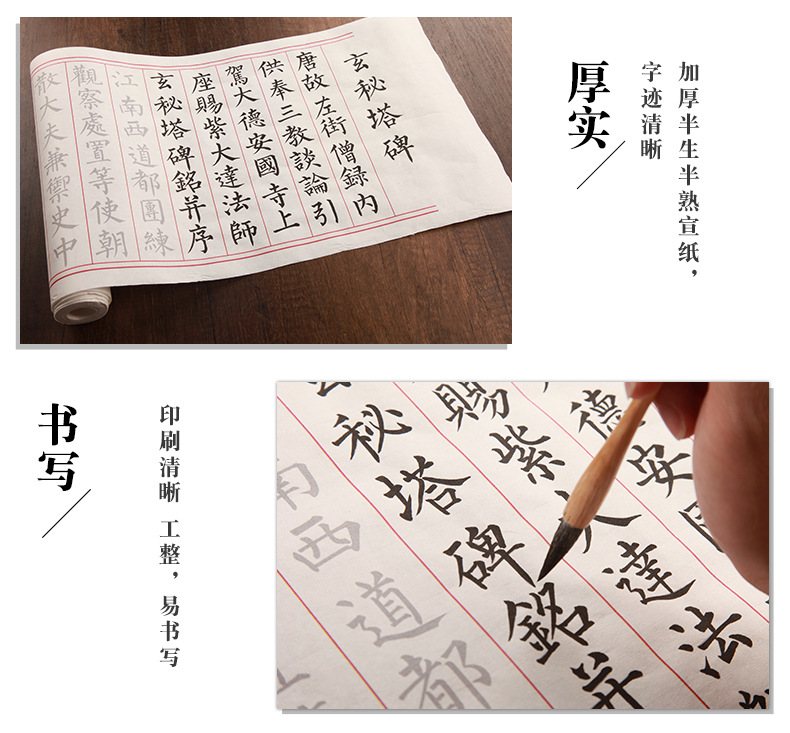 玄秘塔碑
唐故左街僧録内
供奉三教談論引
駕大德安國寺上
座賜紫大達法師
玄秘塔碑銘并序
江南西道都團練
觀察處置等使朝
散大夫兼御史中
厚实
加厚半生半熟宣纸，
字迹清晰
书写
印刷清晰 工整，易书写
德安國
賜紫大達法
秘塔碑銘并
南西道都